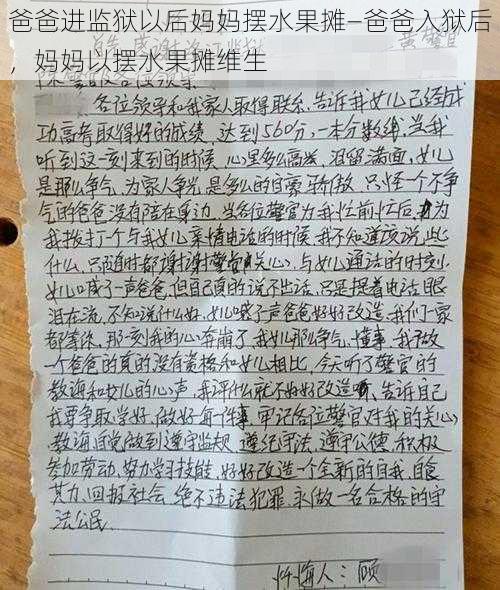 爸爸进监狱以后妈妈摆水果摊—爸爸入狱后
，妈妈以摆水果摊维生
各位领导和我家人取得联系.告诉我女儿已经成
功高考取得好的成绩.达到560分.一本分数线.当我
听到这一刻来到的时候.心里多么高兴.泪留满面.女儿
是那么争气.为家人争光.是多么的自豪骄傲.只怪一个不争
气的爸爸没有陪在身边.当各位警官为我忙前忙后.为
我拨打一个与我女儿亲情电话的时候.我不知道该说些
什么.只随时都谢谢警官关心.与女儿通话的时刻.
女儿喊了一声爸爸.但自己真的说不出话.只是握着电话.眼
泪在流.不知说什么好.女儿喊了声爸爸好好改造.我们一家
都等你.那一刻我的心奔崩了.我女儿那么争气.懂事.我做
一个爸爸的真的没有资格和女儿相比.今天听了警官的
教诲和女儿的心声.我评什么就不好好改造.告诉自己
我要争取学好.做好每件事.牢记各位警官对我的关心
教诲.自觉做到遵守监规.遵纪守法.遵守公德.积极
参加劳动.努力学习技能.好好改造一个全新的自我.自食
其力.回报社会.绝不违法犯罪.永做一名合格的守
法公民.
忏悔人：顾